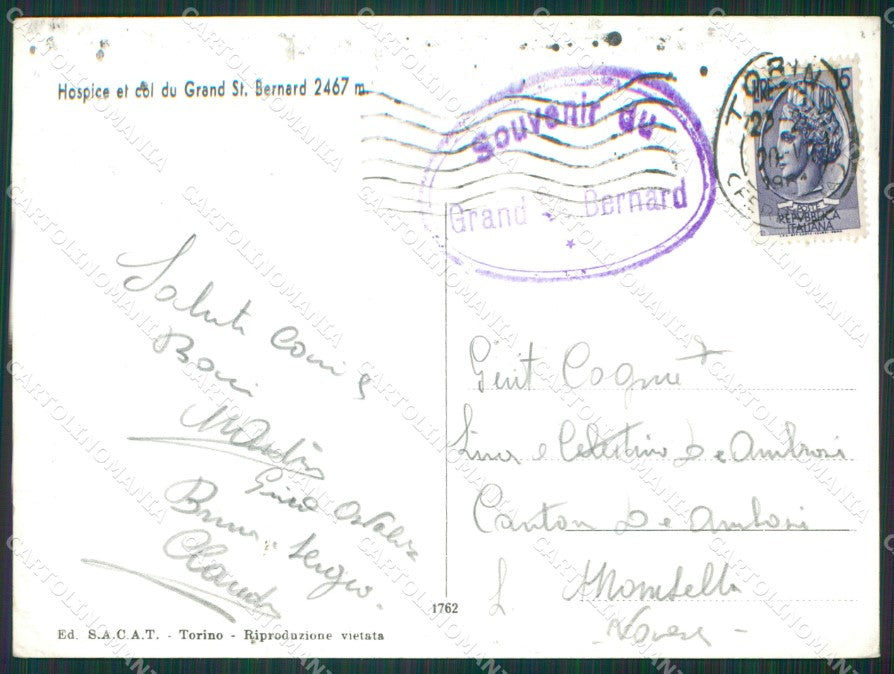 Hospice et col du Grand St. Bernard 2467 m.
Souvenir du
Grand - Bernard
TORIN
LIRE 15
POSTE
REPVBBLICA
ITALIANA
Saluti cari e
Baci
Gino Osvalda
Bruna Sergio
Claudio
Gent Cognet
Lina e Celestino De Ambrosi
Canton De Ambrosi
1762
Ed. S.A.C.A.T. - Torino - Riproduzione vietata
CARTOLINOMANIA